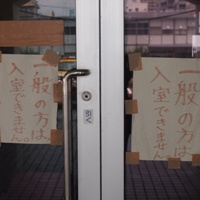 一般の方は
入室できません。
引く
一般の方は
入室できません